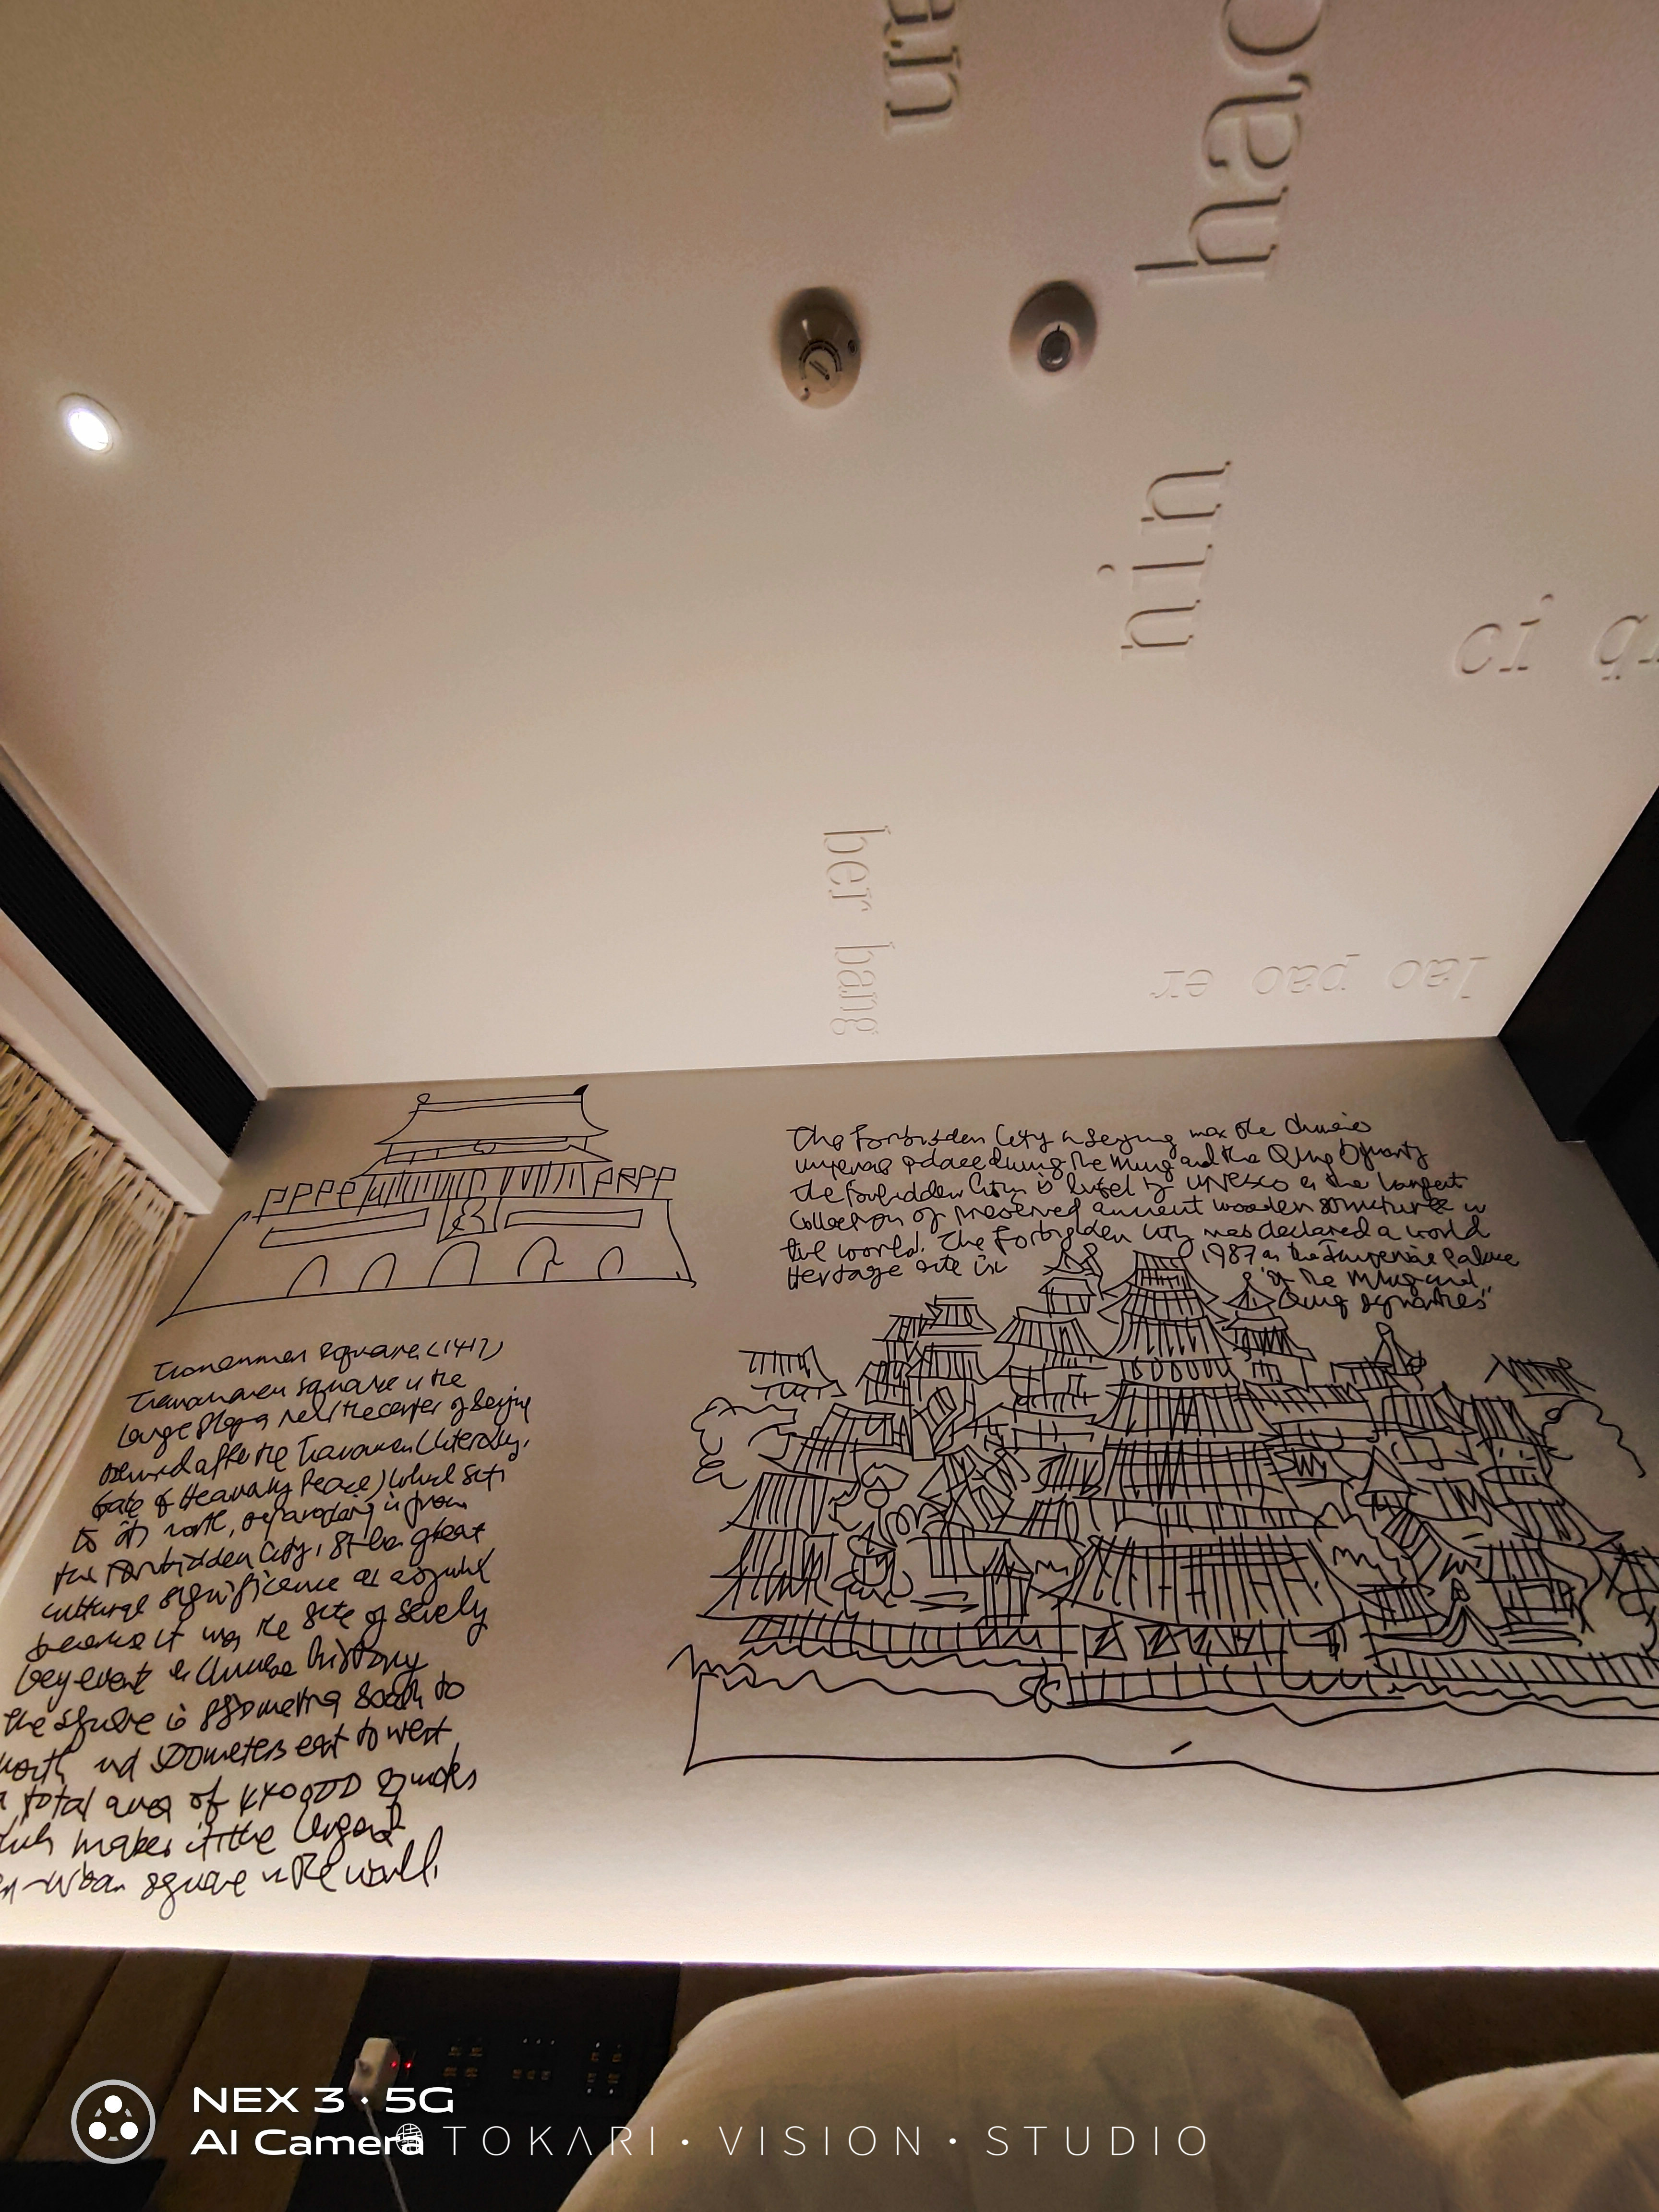 an
hao
nin
ci
ber bang
lao pao er
The Forbidden City in Beijing was the Chinese
imperial palace during the Ming and the Qing Dynasty
the forbidden City is listed by UNESCO as the largest
Collection of preserved ancient wooden structures in
the world. The Forbidden City was declared a world
Heritage site in 1987 as the Imperial Palace
of the Ming and
Qing dynasties"
Tiananmen Square (1417)
Tiananmen square is the
large near the center of Beijing
named after the Tiananmen (literally,
Gate of Heavenly Peace) which sits
to its north, separating it from
the Forbidden City, great
cultural significance as a
because it was the site of
key event in Chinese history
the square is south to
north and 500 meters east to west
a total area of 440000
makes it the largest
urban square in the world,
NEX 3 · 5G
AI Camera
TOKARI · VISION · STUDIO